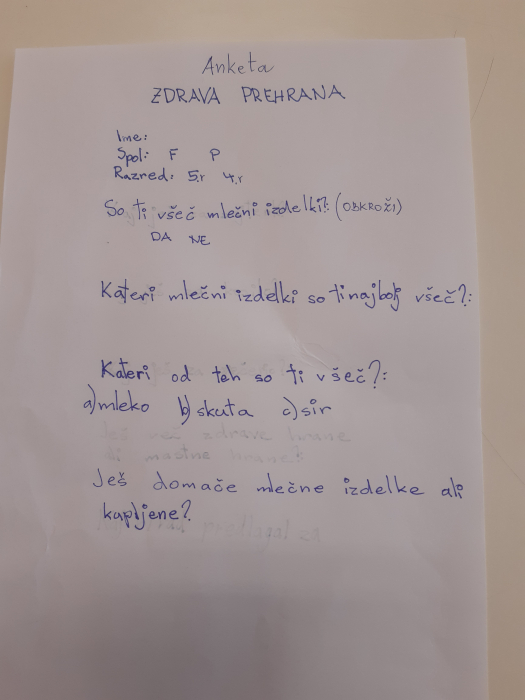 Anketa
ZDRAVA PREHRANA
Ime:
Spol: F P
Razred: 5.r 4.r
So ti všeč mlečni izdelki?: (OBKROŽI)
DA NE
Kateri mlečni izdelki so ti najbolj všeč?:
Kateri od teh so ti všeč?:
a) mleko b) skuta c) sir
Ješ domače mlečne izdelke ali
kupljene?